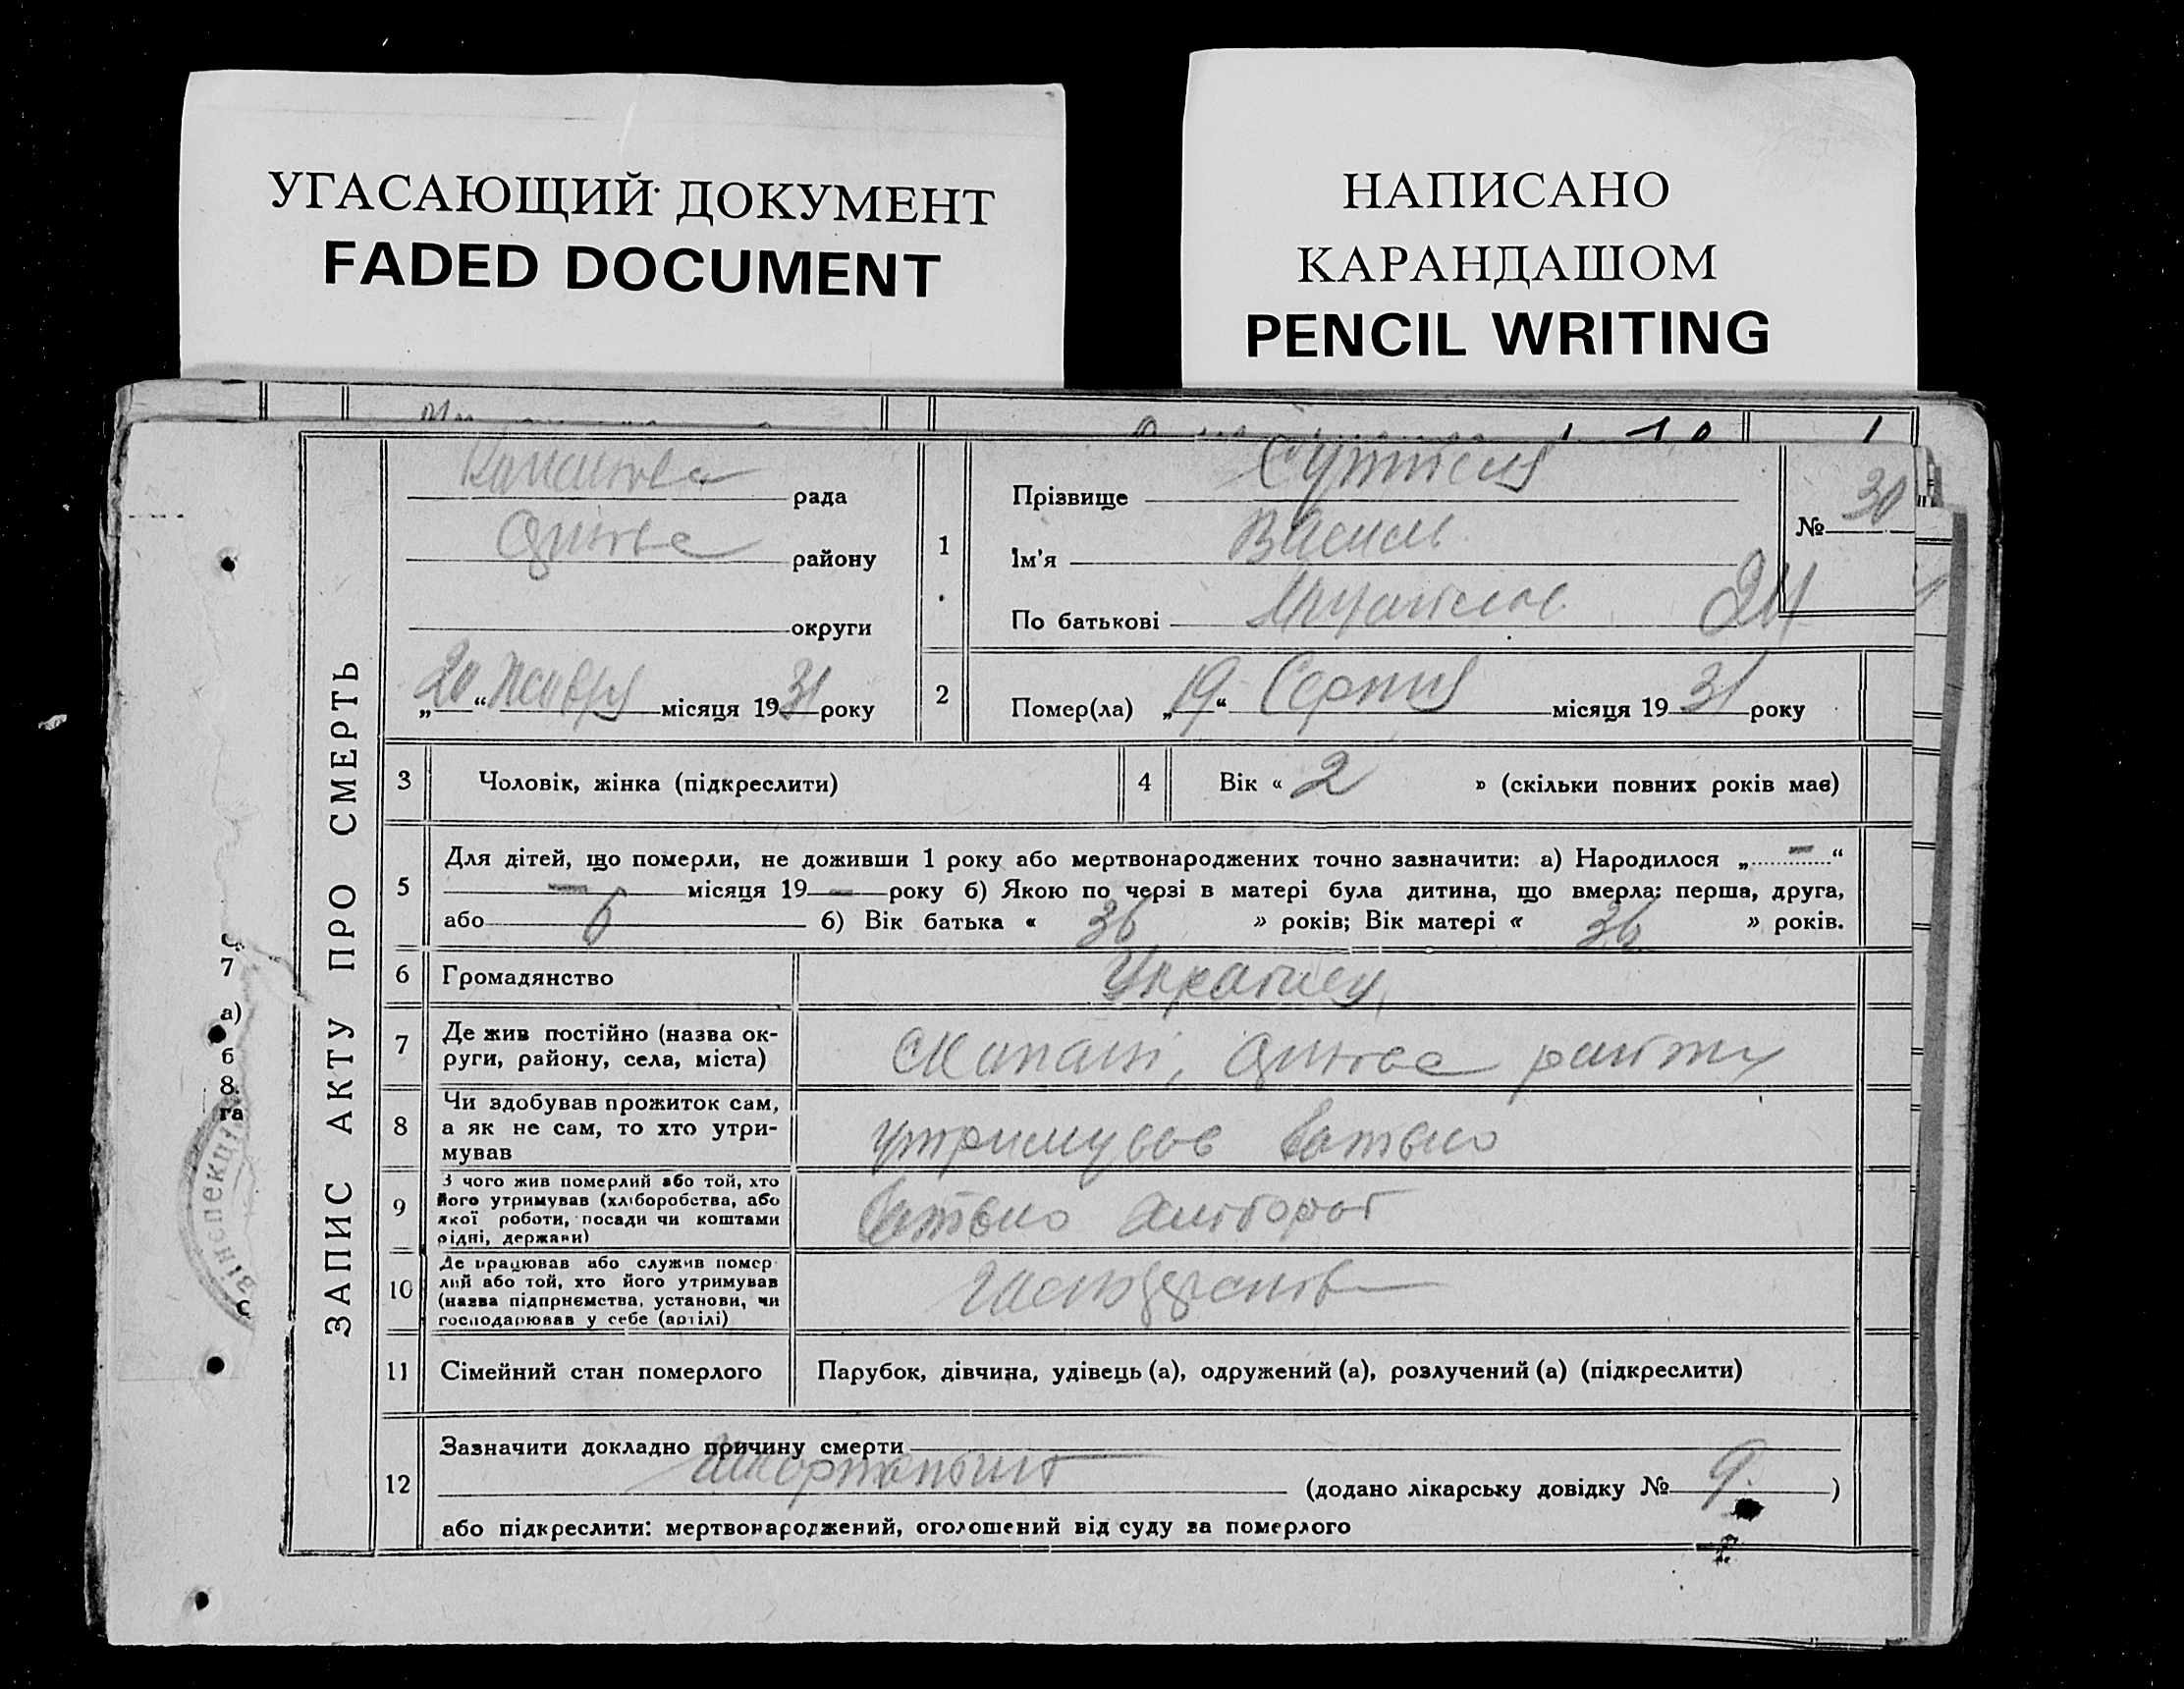 УГАСАЮЩИЙ ДОКУМЕНТ
FADED DOCUMENT
НАПИСАНО
КАРАНДАШОМ
PENCIL WRITING
ЗАПИС АКТУ ПРО СМЕРТЬ
рада
району
округи
„20“ місяця 1931 року
1
Прізвище
Ім'я Василь
По батькові
№ 30
24
2
Помер(ла) „19“ Серпня місяця 1931 року
3 Чоловік, жінка (підкреслити)
4 Вік « 2 » (скільки повних років має)
5
Для дітей, що померли, не доживши 1 року або мертвонароджених точно зазначити: а) Народилося „ — “
— місяця 19 — року б) Якою по черзі в матері була дитина, що вмерла: перша, друга,
або 6 б) Вік батька « 36 » років; Вік матері « 36 » років.
6 Громадянство
7 Де жив постійно (назва ок-
руги, району, села, міста)
района
8 Чи здобував прожиток сам,
а як не сам, то хто утри-
мував
утримував батько
9 З чого жив померлий або той, хто
його утримував (хліборобства, або
якої роботи, посади чи коштами
рідні, держави)
батько хлібороб
10 Де працював або служив помер
лий або той, хто його утримував
(назва підприємства, установи, чи
господарював у себе (артілі)
11 Сімейний стан померлого
Парубок, дівчина, удівець (а), одружений (а), розлучений (а) (підкреслити)
12
Зазначити докладно причину смерти
(додано лікарську довідку № 9. )
або підкреслити: мертвонароджений, оголошений від суду за померлого
7
а)
б
8.
га
інспекц